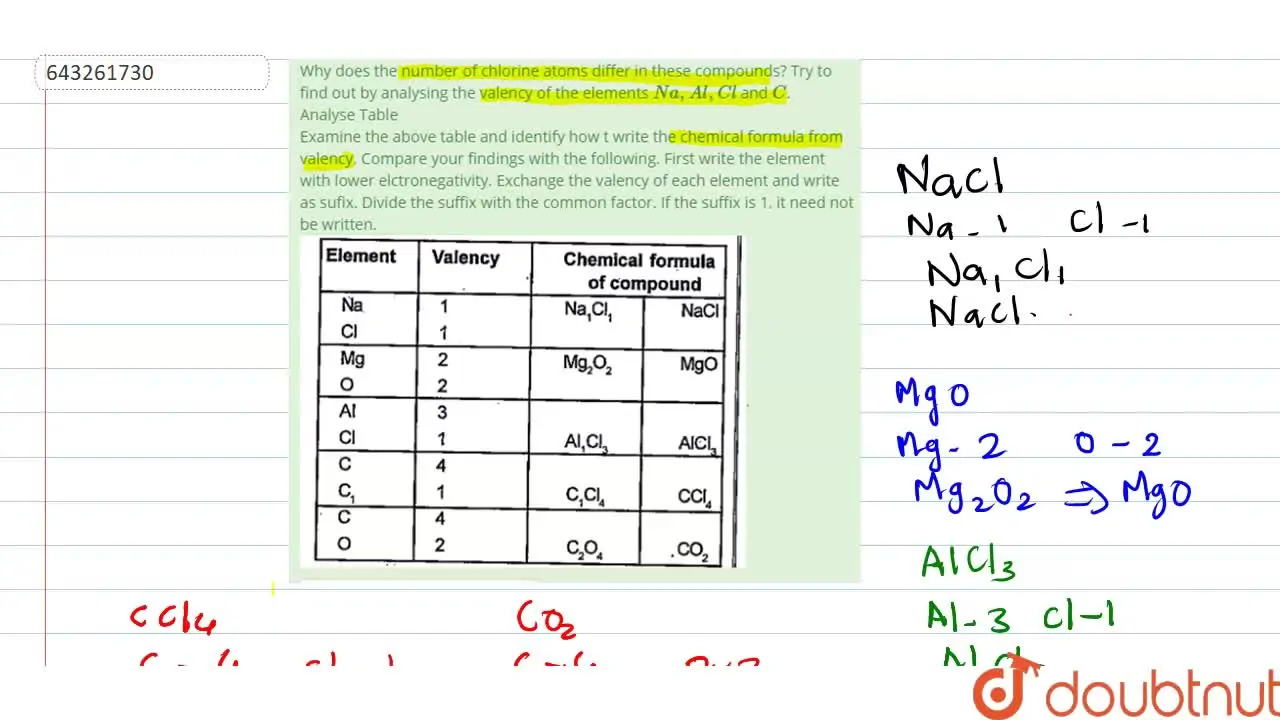 643261730
Why does the number of chlorine atoms differ in these compounds? Try to
find out by analysing the valency of the elements Na, Al, Cl and C.
Analyse Table
Examine the above table and identify how t write the chemical formula from
valency. Compare your findings with the following. First write the element
with lower elctronegativity. Exchange the valency of each element and write
as sufix. Divide the suffix with the common factor. If the suffix is 1, it need not
be written.
Element Valency Chemical formula
of compound
Na 1 Na₁Cl₁ NaCl
Cl 1
Mg 2 Mg₂O₂ MgO
O 2
Al 3
Cl 1 Al₁Cl₃ AlCl₃
C 4
C₁ 1 C₁Cl₄ CCl₄
C 4
O 2 C₂O₄ .CO₂
NaCl
Na - 1 Cl - 1
Na₁ Cl₁
NaCl.
MgO
Mg - 2 O - 2
Mg₂O₂ ⇒ MgO
AlCl₃
Al - 3 Cl - 1
CCl₄ CO₂
doubtnut